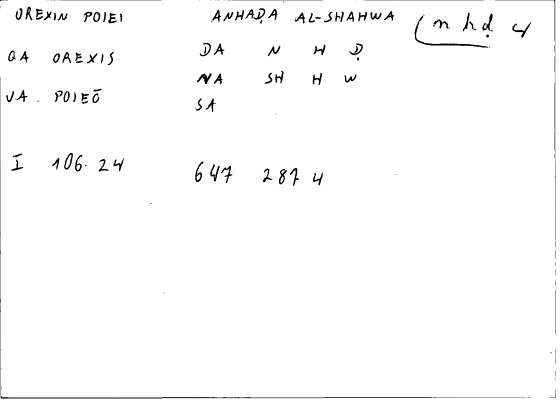 OREXIN POIEI ANHAḌA AL-SHAHWA (n h ḍ 4
GA OREXIS DA N H Ḍ
VA. POIEŌ NA SH H W
SA
I 106.24 647 287 4